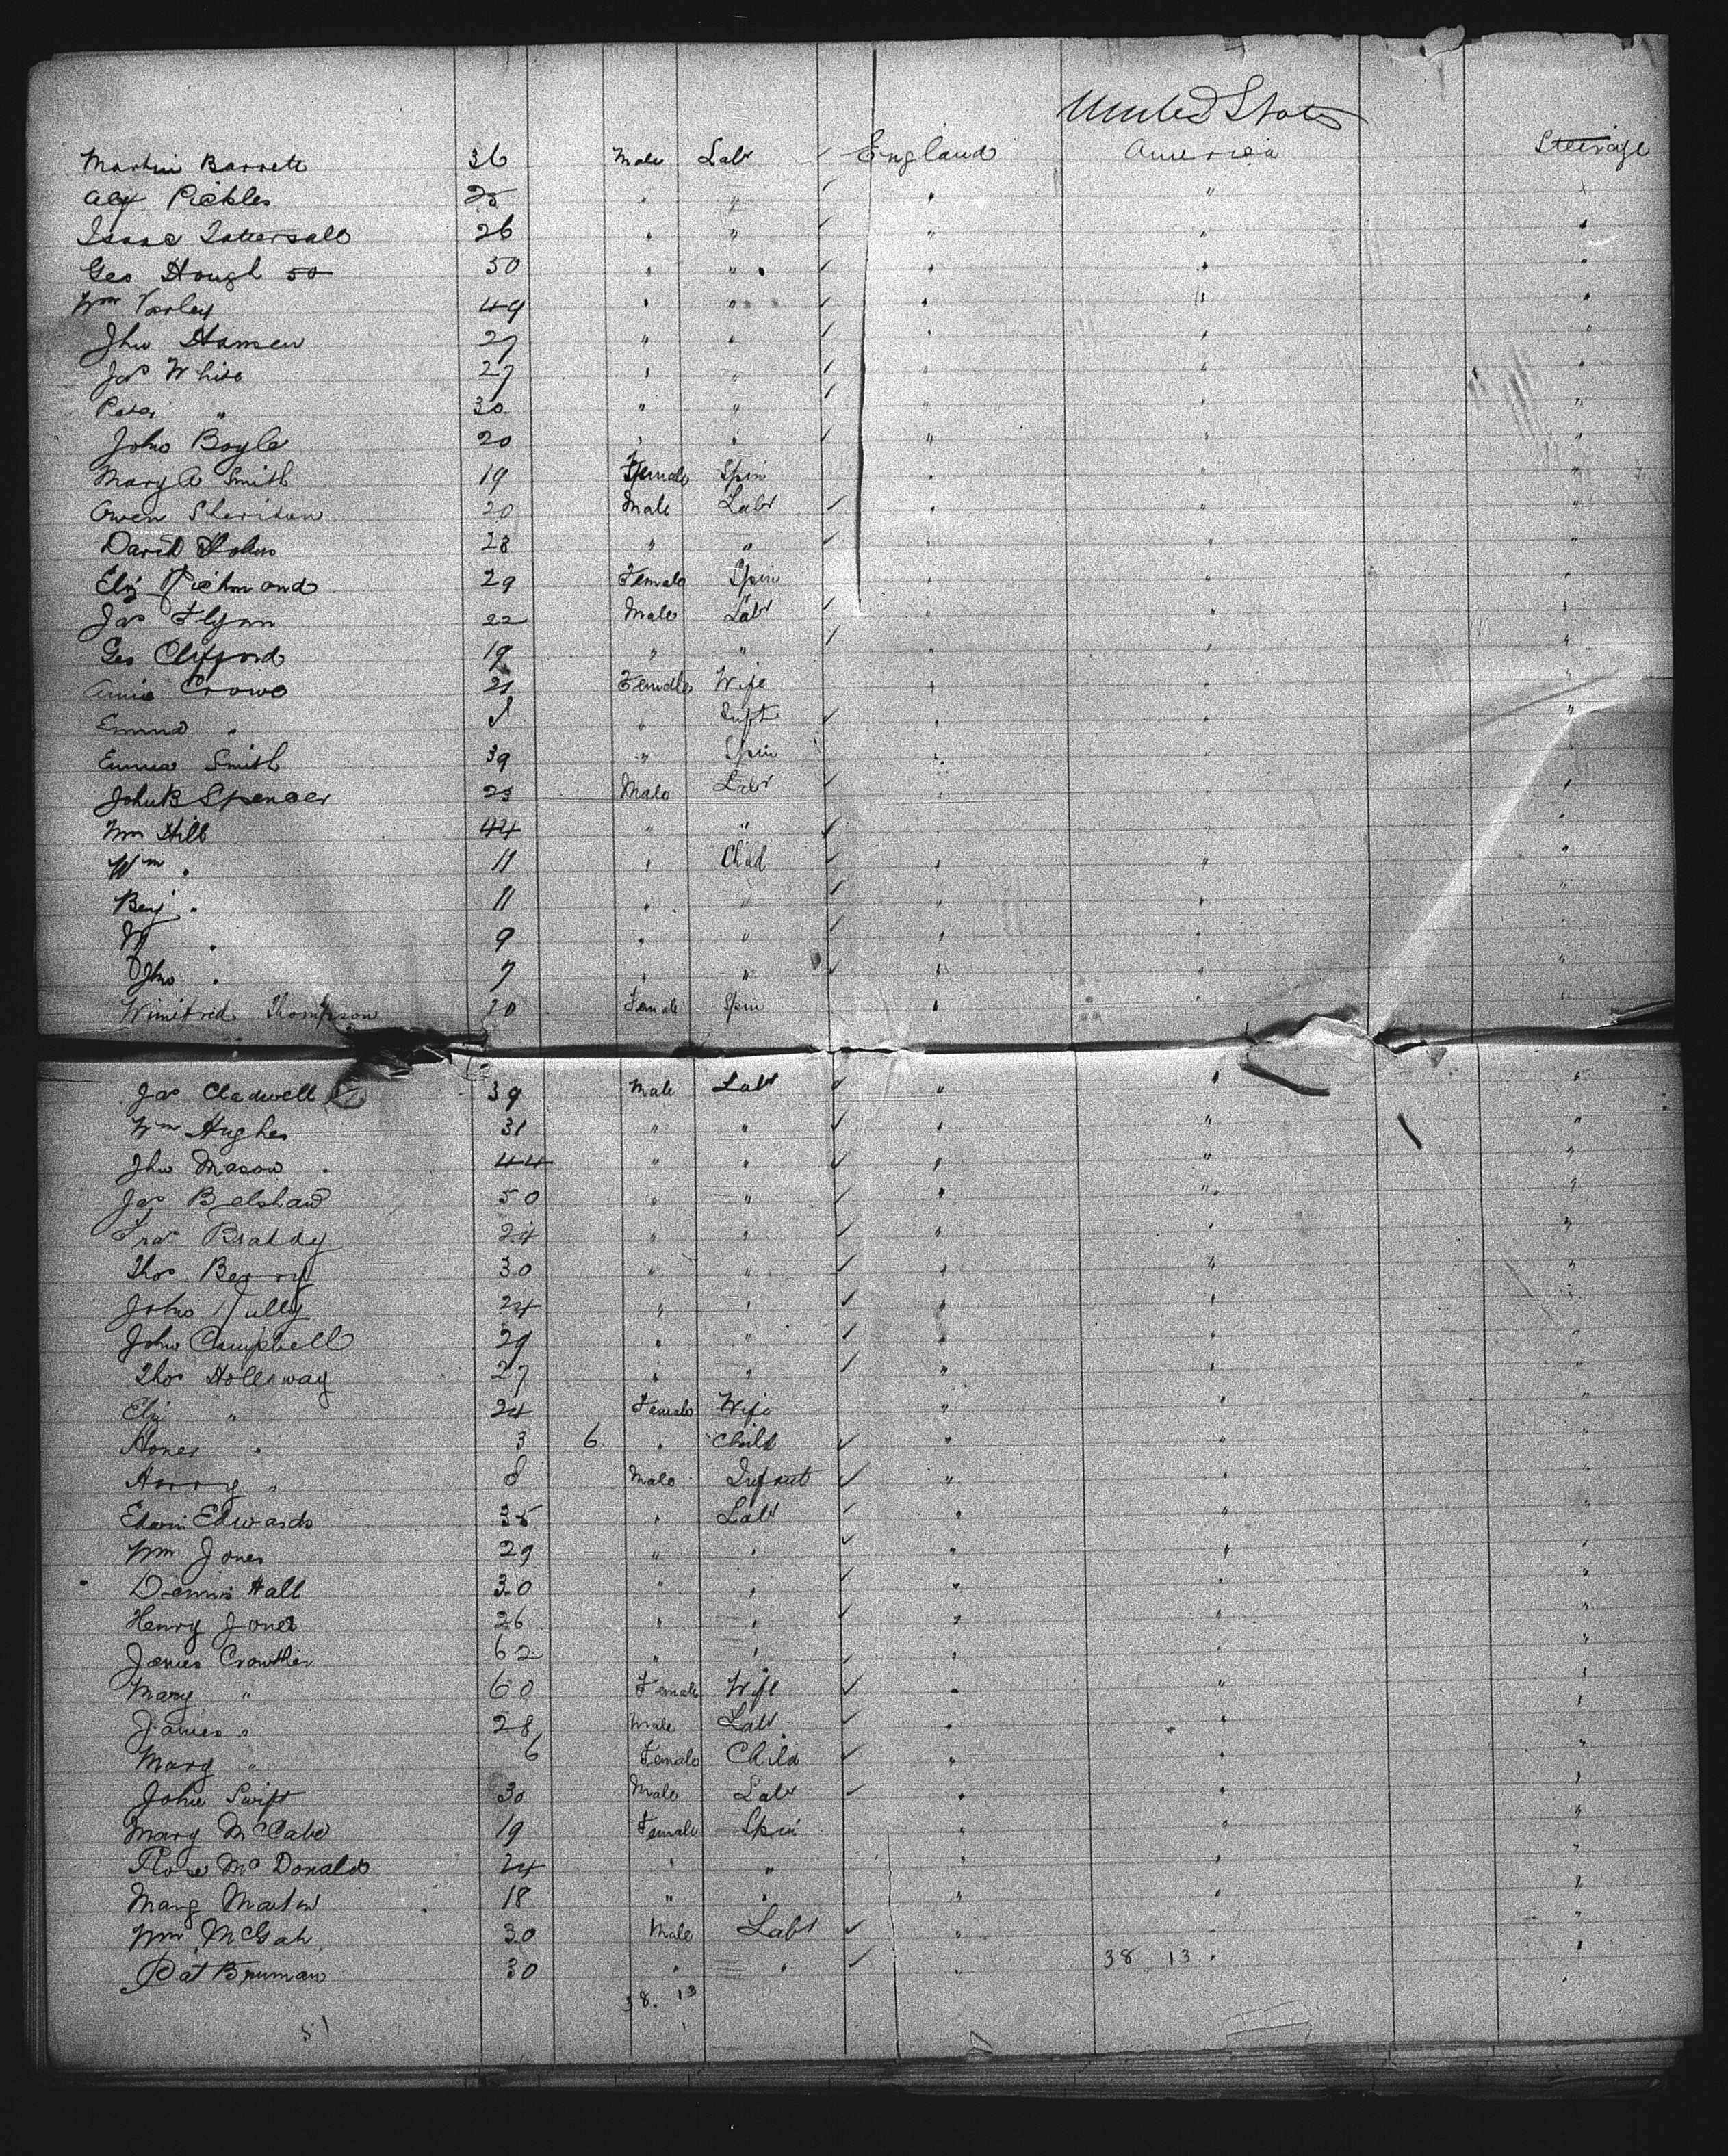 United States
Martin Barrett 36 Male Labr ✓ England America Steerage
Alex Pickles 25 " " ✓ " " "
Isaac Tattersall 26 " " ✓ " " "
Geo Hough 50 50 " " ✓ " " "
Wm Varley 49 " " ✓ " " "
Jno Hansen 27 " " ✓ " " "
Jas White 27 " " ✓ " " "
Peter " 30 " " ✓ " " "
John Boyle 20 " " ✓ " " "
Mary A Smith 19 Female Spin " " "
Owen Sheridan 20 Male Labr ✓ " " "
David Holms 28 " " ✓ " " "
Eliz Richmond 29 Female Spin " " "
Jas Flynn 22 Male Labr ✓ " " "
Geo Clifford 19 " " ✓ " " "
Annie Crowe 21 Female Wife " " "
Emma " " Inft ✓ " " "
Emma Smith 39 " Spin " " "
John B Spencer 23 Male Labr ✓ " " "
Wm Hill 44 " " ✓ " " "
Wm " 11 " Child ✓ " " "
Benj " 11 " " ✓ " " "
" 9 " " ✓ " " "
Jno " 7 " " ✓ " " "
Winifred Thompson 20 Female Spin " " "
Jas Cladwell 39 Male Labr ✓ " " "
Wm Hughes 31 " " ✓ " " "
Jno Mason 44 " " ✓ " " "
Jas Belshaw 50 " " ✓ " " "
Fras Braddy 24 " " ✓ " " "
Thos Berry 30 " " ✓ " " "
John Tully 24 " " ✓ " " "
John Campbell 29 " " ✓ " " "
Thos Holloway 27 " " ✓ " " "
Eliz " 24 Female Wife " " "
" 3 6 " Child ✓ " " "
Harry " Male Infant ✓ " " "
Edwin Edwards 35 " Labr ✓ " " "
Wm Jones 29 " " ✓ " " "
Dennis Hall 30 " " ✓ " " "
Henry Jones 26 " " ✓ " " "
James Crowther 62 " " ✓ " " "
Mary " 60 Female Wife ✓ " " "
James " 28 Male Labr ✓ " " "
Mary " 6 Female Child ✓ " " "
John Swift 30 Male Labr ✓ " " "
Mary McCabe 19 Female Spin " " "
Rose McDonald 24 " " " " "
Marg Martin 18 " " " " "
Wm McGah 30 Male Labr ✓ " " "
Pat Brennan 30 " " ✓ " 38 13 "
38. 13
51